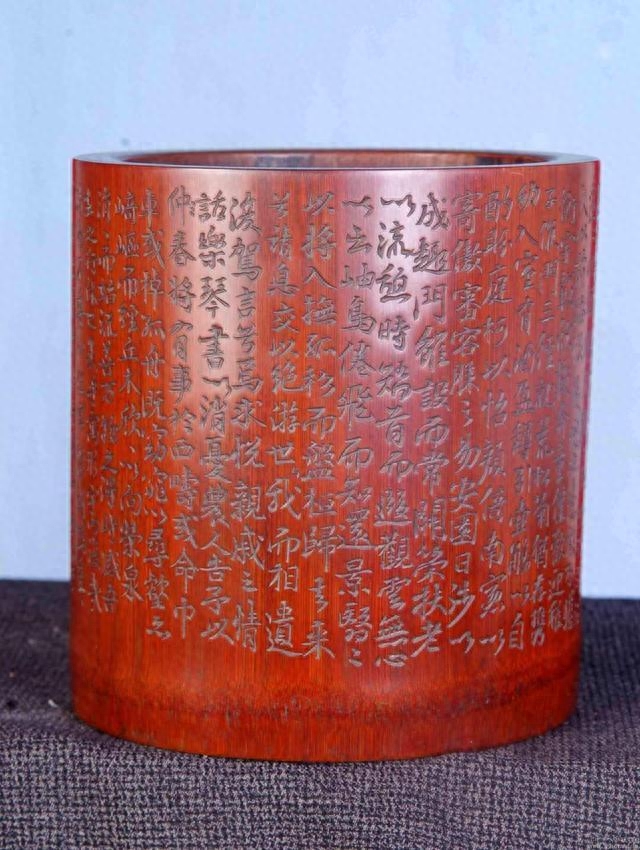 子候門三徑就荒松菊猶存携
幼入室有酒盈樽引壺觴以自
酌眄庭柯以怡顏倚南窓以
寄傲審容膝之易安園日涉以
成趣門雖設而常關策扶老
以流憩時矯首而遐觀雲無心
以出岫鳥倦飛而知還景翳〻
以將入撫孤松而盤桓歸去来
兮請息交以絕游世我而相遺
復駕言兮焉求悅親戚之情
話樂琴書以消憂農人告予以
仲春將有事於西疇或命巾
車或棹孤舟既窈窕以尋壑亦
崎嶇而經丘木欣〻以向榮泉
涓〻而始流善萬物之得時感吾